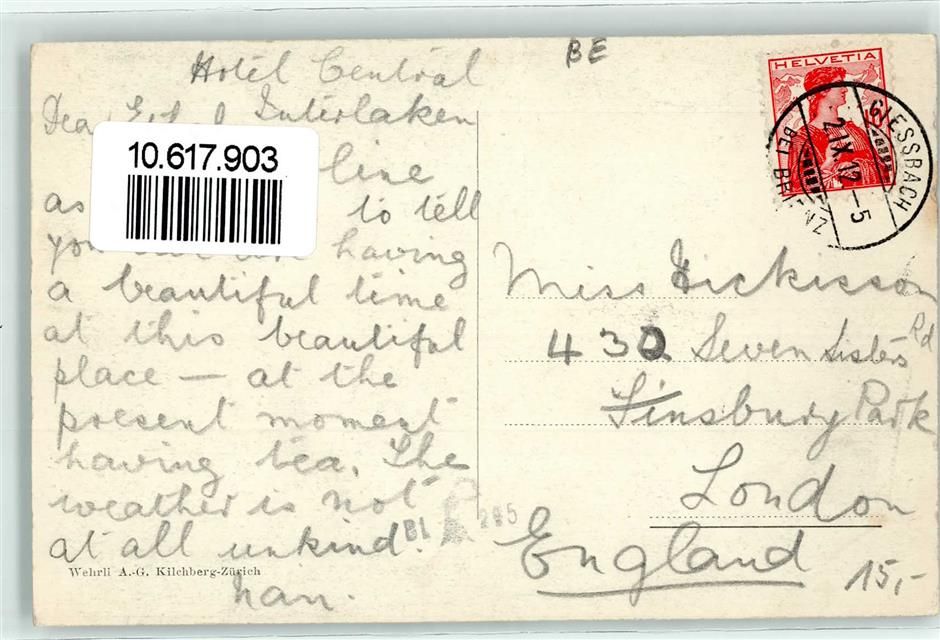 Hotel Central
Interlaken
Dear
10.617.903
line
as to tell
you having
a beautiful time
at this beautiful
place — at the
present moment
having tea. The
weather is not
at all unkind.
Nan.
Wehrli A.-G. Kilchberg-Zürich
BE
HELVETIA
GIESSBACH
BEI BRIENZ
2.IX.12–5
Miss Hickisson
430 Seven Sisters Rd
Finsbury Park
London
England
BL
285
15,-